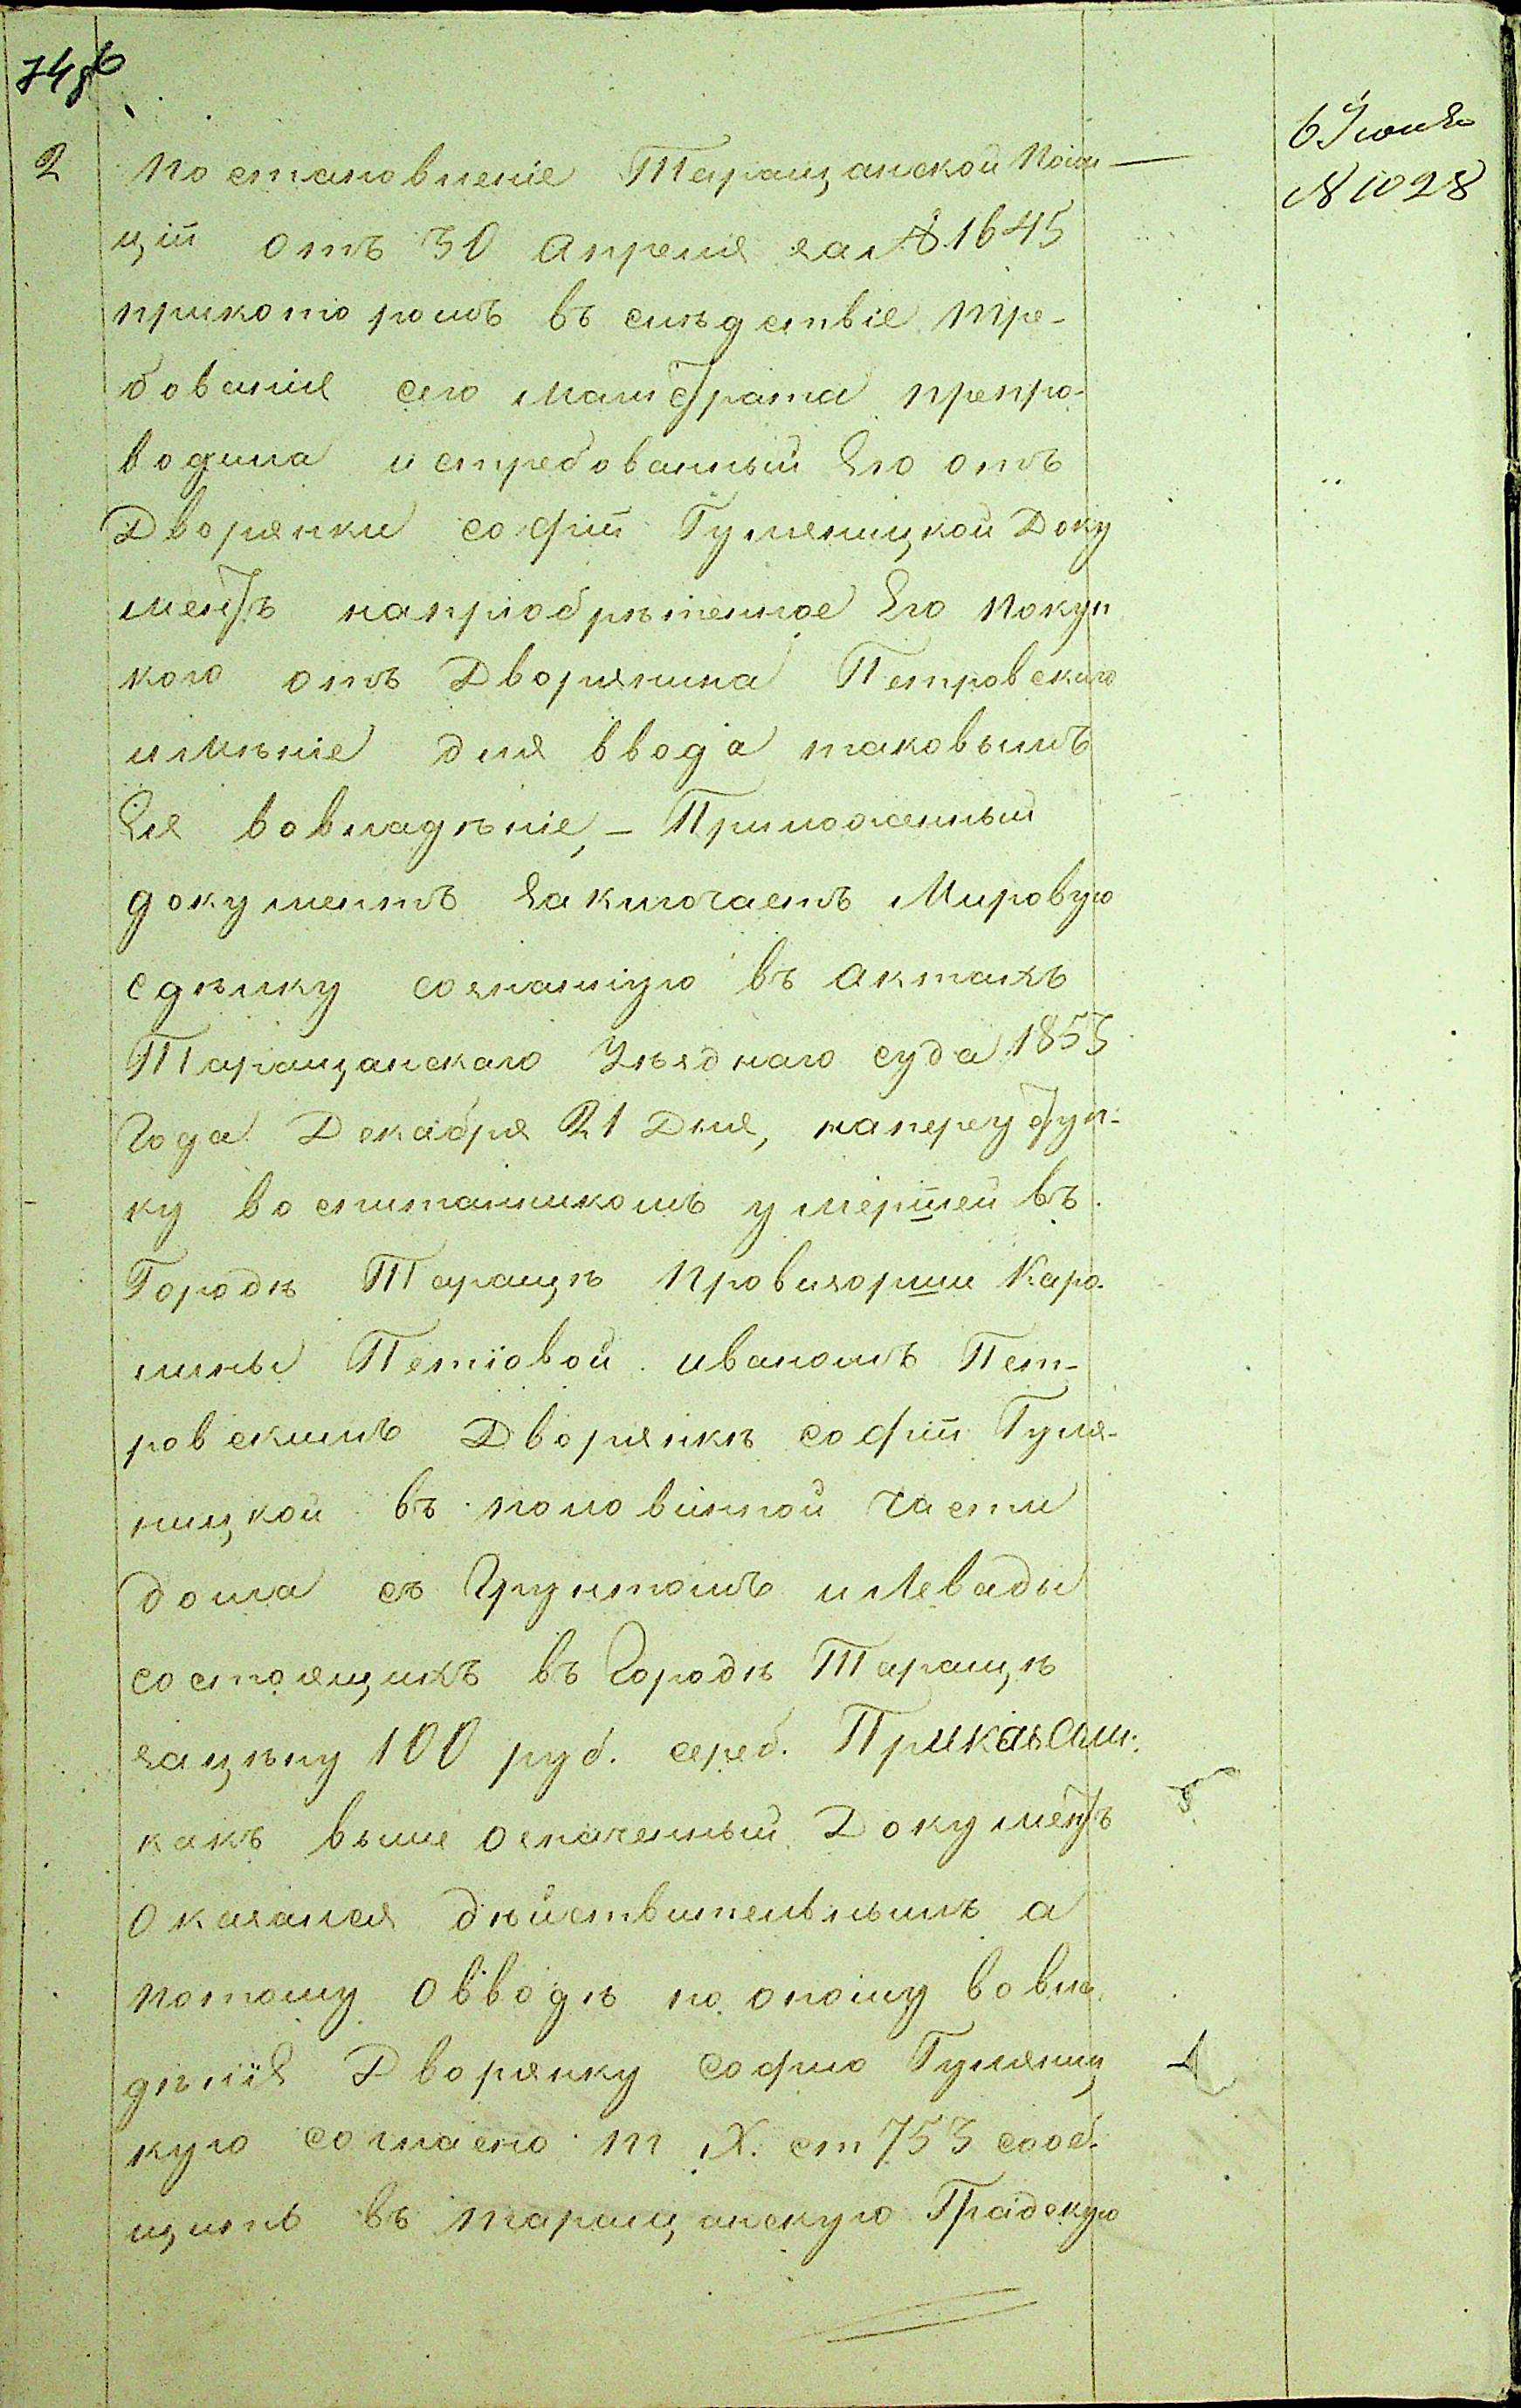 74об
6 Іюня
№ 1028
2
Постановленіе Таращанской Поли-
ціи отъ 30 Апреля за № 1645
прикоторомъ въ слѣдствіе тре-
бованія сего Магистрата препро-
водила истребованный Ею отъ
Дворянки Софіи Гуляницкой Доку
ментъ напріобрѣтенное Ею покуп
кою отъ Дворянина Петровского
имѣніе для ввода таковымъ
Ея вовладѣніе, – Приложенный
документъ заключаетъ Мировую
сдѣлку сознанную въ актахъ
Таращанскаго Уѣзднаго суда 1853
Года Декабря 21 Дня, напереуступ-
ку воспитанникомъ умершей въ
Городѣ Таращѣ провизорши Каро-
лины Петіовой Иваномъ Пет-
ровскимъ Дворянкѣ Софіи Гуля-
ницкой въ половинной части
дома съ Грунтомъ и Левады
состоящихъ въ Городѣ Таращѣ
зацѣну 100 руб. сереб. Приказали:
какъ выше означенный Документъ
Оказался дѣйствительнымъ а
потому о вводѣ по оному во вла
дѣнія Дворянку Софію Гуляниц
кую согласно т. X. ст 753 сооб-
щить въ Таращанскую Градскую